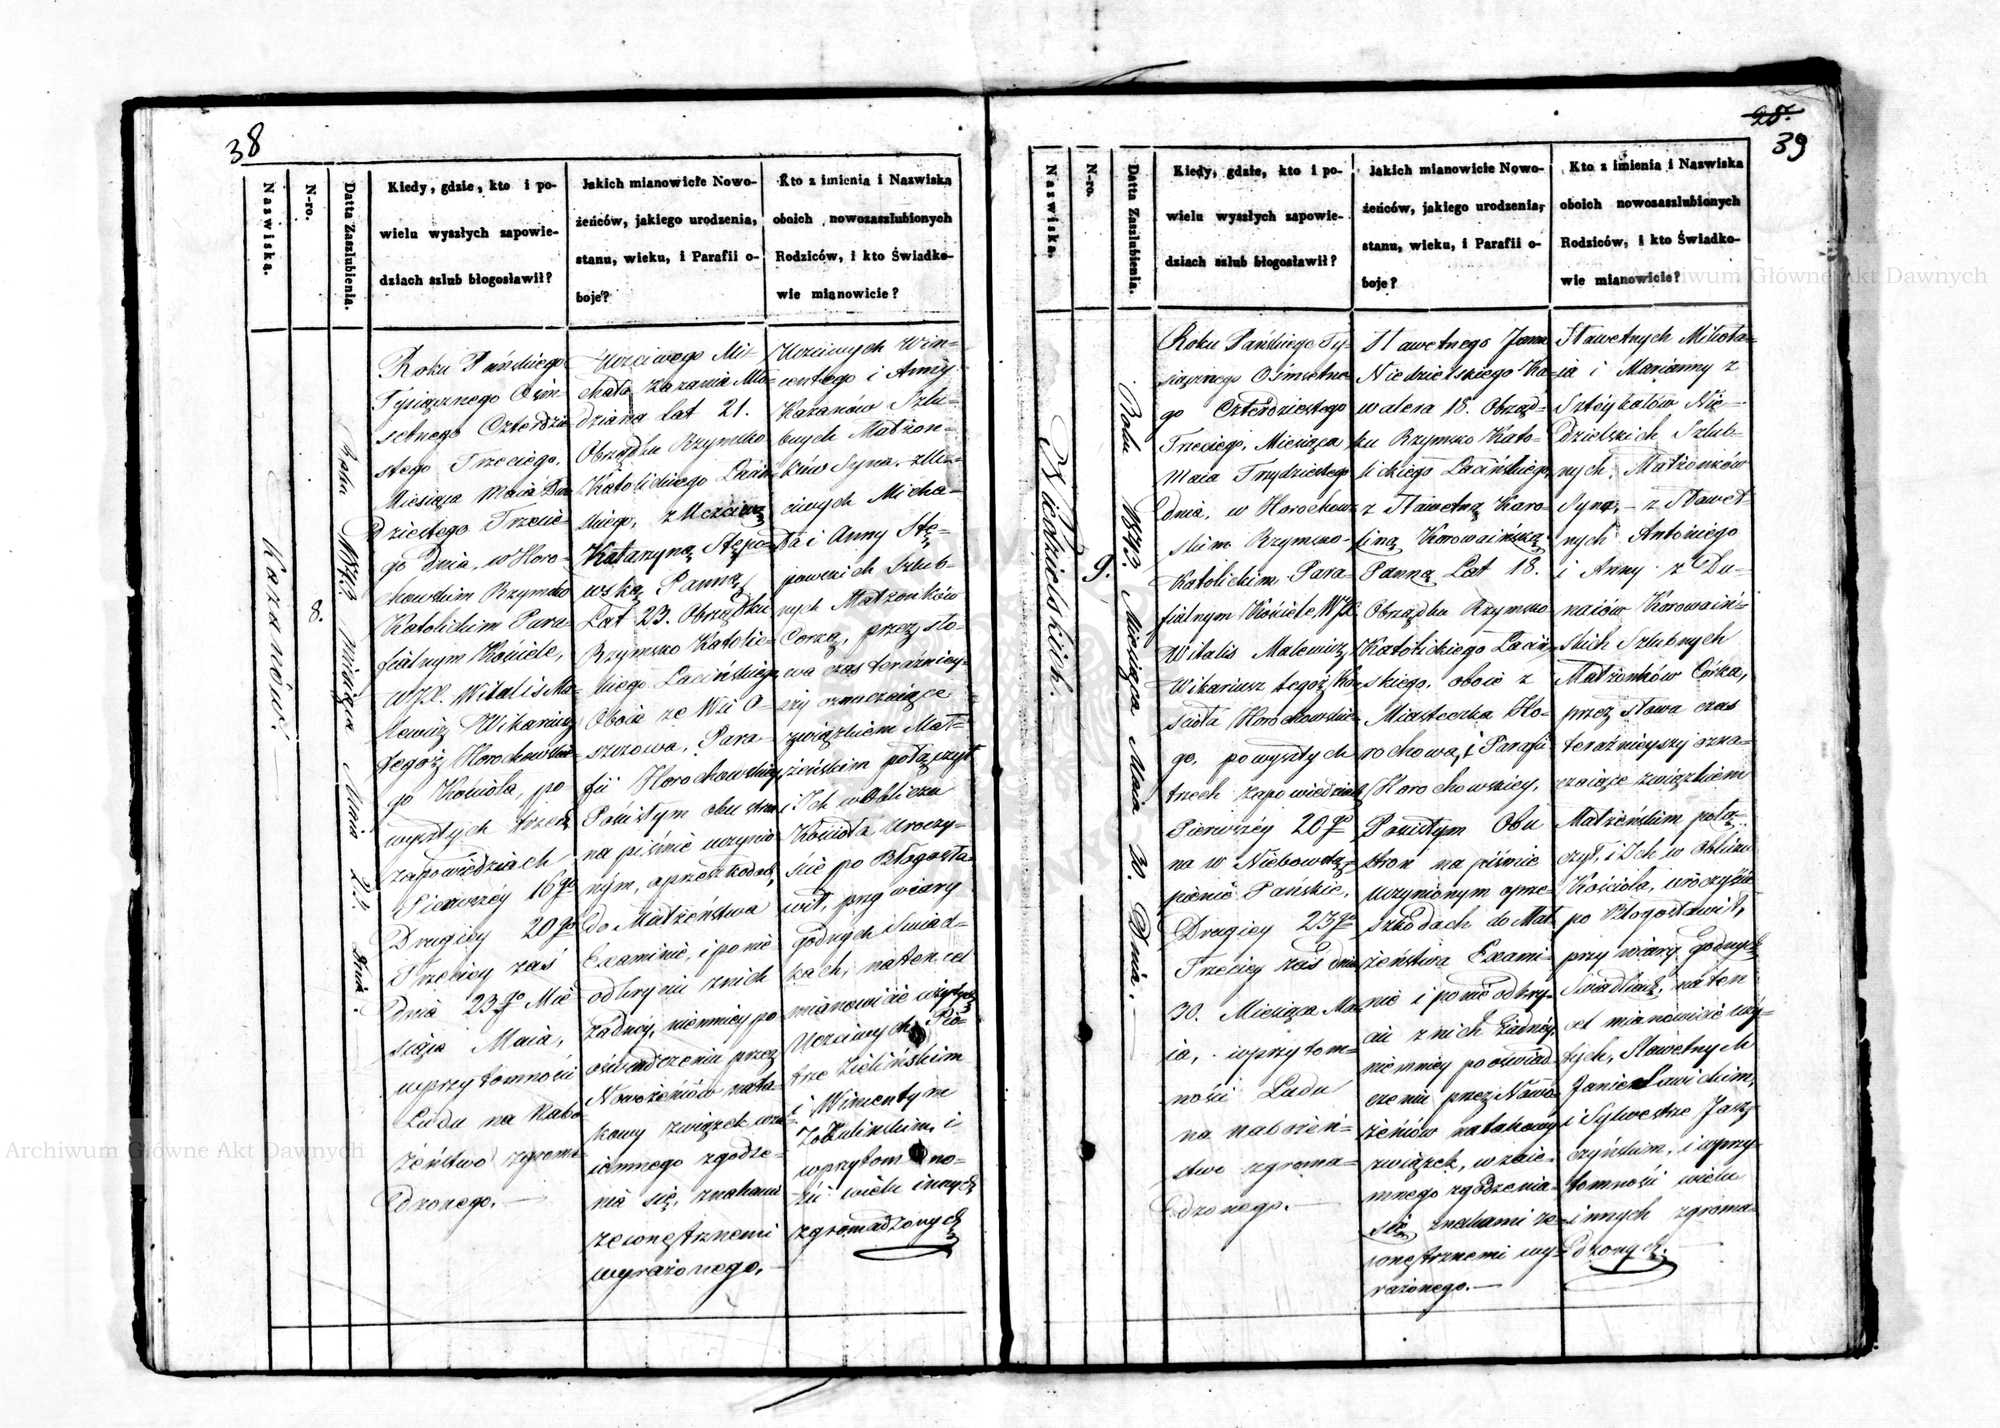 38
Nazwiska.
N-ro.
Datta Zaszlubienia.
Kiedy, gdzie, kto i po-
wielu wyszłych zapowie-
dziach szlub błogosławił?
Jakich mianowicie Nowo-
żeńców, jakiego urodzenia,
stanu, wieku, i Parafii o-
boje?
Kto z imienia i Nazwiska
oboich nowozaszlubionych
Rodziców, i kto Świadko-
wie mianowicie?
Kazanów.
8.
Roku 1843 Miesiąca Maia 23. Dnia.
Roku Pańskiego
Tysiącznego Ośm-
setnego Czterdzie
stego Trzeciego,
Miesiąca Maia Dwu
dziestego Trzecie-
go Dnia, w Horo-
chowskim Rzymsko
Katolickim Para-
fialnym Kościele,
WJX. Witalis Ma-
lewicz Wikariusz
tegoż Horochowskie
go Kościoła, po
wyszłych trzech
zapowiedziach
Pierwszey 16go
Drugiey 20go
Trzeciey zaś
Dnia 23go Mie
siąca Maia,
wprzytomności
Ludu na Nabo
żeństwo zgroma
dzonego.
Uczciwego Mi-
chała Kazana Mło-
dziana Lat 21.
Obrządku Rzymsko
Katolickiego Laciń
skiego, z Uczciwą
Katarzyną Stępo-
wską Panną
Lat 23. Obrządku
Rzymsko Katolic-
kiego Lacińskiego
Oboie ze Wsi O-
szczowa, Para-
fii Horochowskiey
Poczistym obu stron
na piśmie uczynio
nym, oprzeszkodach
do Małżeństwa
Examinie, i po nie
odkryciu znich
żadney, niemniey po
oświadczeniu przez
Nowożeńców nata-
kowy związek wza
iemnego zgodze-
nia się, znakami
zewnętrznemi
wyrażonego.
Uczciwych Win-
centego i Anny
Kazanów Szlu-
bnych Małżon-
ków Syna, z Ucz-
ciwych Micha-
ła i Anny Stę-
powskich Szlub-
nych Małżonków
Corką, przez sło-
wa czas teraźniey-
szy oznaczaiące
związkiem Mał-
żeńskim połączył
i Ich w Obliczu
Kościoła Uroczy-
ście po Błogosła-
wił, przy wiary
godnych Swiad-
kach, na ten cel
mianowicie użytych
Uczciwych Pio-
trze Zielińskim
i Wincentym
Zokulińskim, i
wprzytomno-
ści wielu innych
zgromadzonych
28.
39
Nazwiska.
N-ro.
Datta Zaszlubienia.
Kiedy, gdzie, kto i po-
wielu wyszłych zapowie-
dziach szlub błogosławił?
Jakich mianowicie Nowo-
żeńców, jakiego urodzenia,
stanu, wieku, i Parafii o-
boje?
Kto z imienia i Nazwiska
oboich nowozaszlubionych
Rodziców, i kto Świadko-
wie mianowicie?
Niedzielskich.
9.
Roku 1843. Miesiąca Maia 30. Dnia.
Roku Pańskiego Ty-
siącznego Ośmsetne
go Czterdziestego
Trzeciego, Miesiąca
Maia Trzydziestego
Dnia, w Horochow-
skim Rzymsko-
Katolickim Para-
fialnym Kościele, WJX.
Witalis Malewicz,
Wikariusz tegoż Ko-
ścioła Horochowskie-
go, po wyszłych
trzech zapowiedziach
Pierwszéy 20go
na w Niebowstą-
pienie Pańskie,
Drugiey 23go
Trzeciey zaś dnia
30. Miesiąca Ma-
ia, wprzytom-
ności Ludu
na nabożeń-
stwo zgroma-
dzonego.
Sławetnego Jana
Niedzielskiego Ka-
walera 18. Obrząd-
ku Rzymsko Kato-
lickiego Lacińskiego,
z Sławetną Karo-
liną Korowaińską
Panną Lat 18.
Obrządku Rzymsko
Katolickiego Laciń-
skiego, oboie z
Miasteczka Ho-
rochowa, i Parafii
Horochowskiey,
Poczistym Obu
stron na piśmie
uczynionym oprze-
szkodach do Mał
żeństwa Exami-
nie i po nie odkry-
ciu znich żadnéy,
niemniey po oświad-
czeniu przez Nowo-
żeńców natakowy
związek, wzaie-
mnego zgodzenia-
się znakami ze-
wnętrznemi wy-
rażonego.
Sławetnych Mikoła-
ia i Marianny z
Szteykałów Nie-
dzielskich Szlub-
nych Małżonków
Syna, z Sławet
nych Antoniego
i Anny z Du-
naiów Korowaiń-
skich Szlubnych
Małżonków Córką,
przez słowa czas
teraźnieyszy ozna-
czaiące związkiem
Małżeńskim połą-
czył, i Ich w Obliczu
Kościoła, uroczyście
po Błogosławił,
przy wiary godnych
Swiadkach, na ten
cel mianowicie uży-
tych, Sławetnych
Janie Sawickim,
i Sylwestrze Jasz-
czyńskim, i wprzy-
tomności wielu
innych zgroma-
dzonych.
Archiwum Główne Akt Dawnych
Archiwum Główne Akt Dawnych